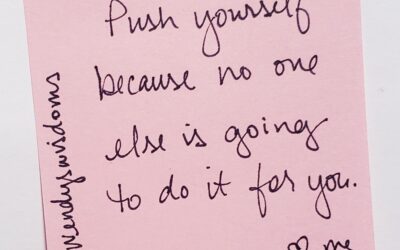 Push yourself
because no one
else is going
to do it for you.
wendyswisdoms